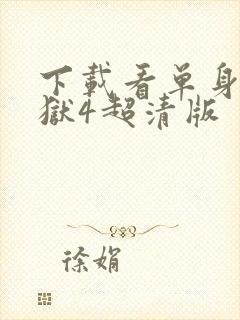 下載看單身
獄4超清版
徐娟